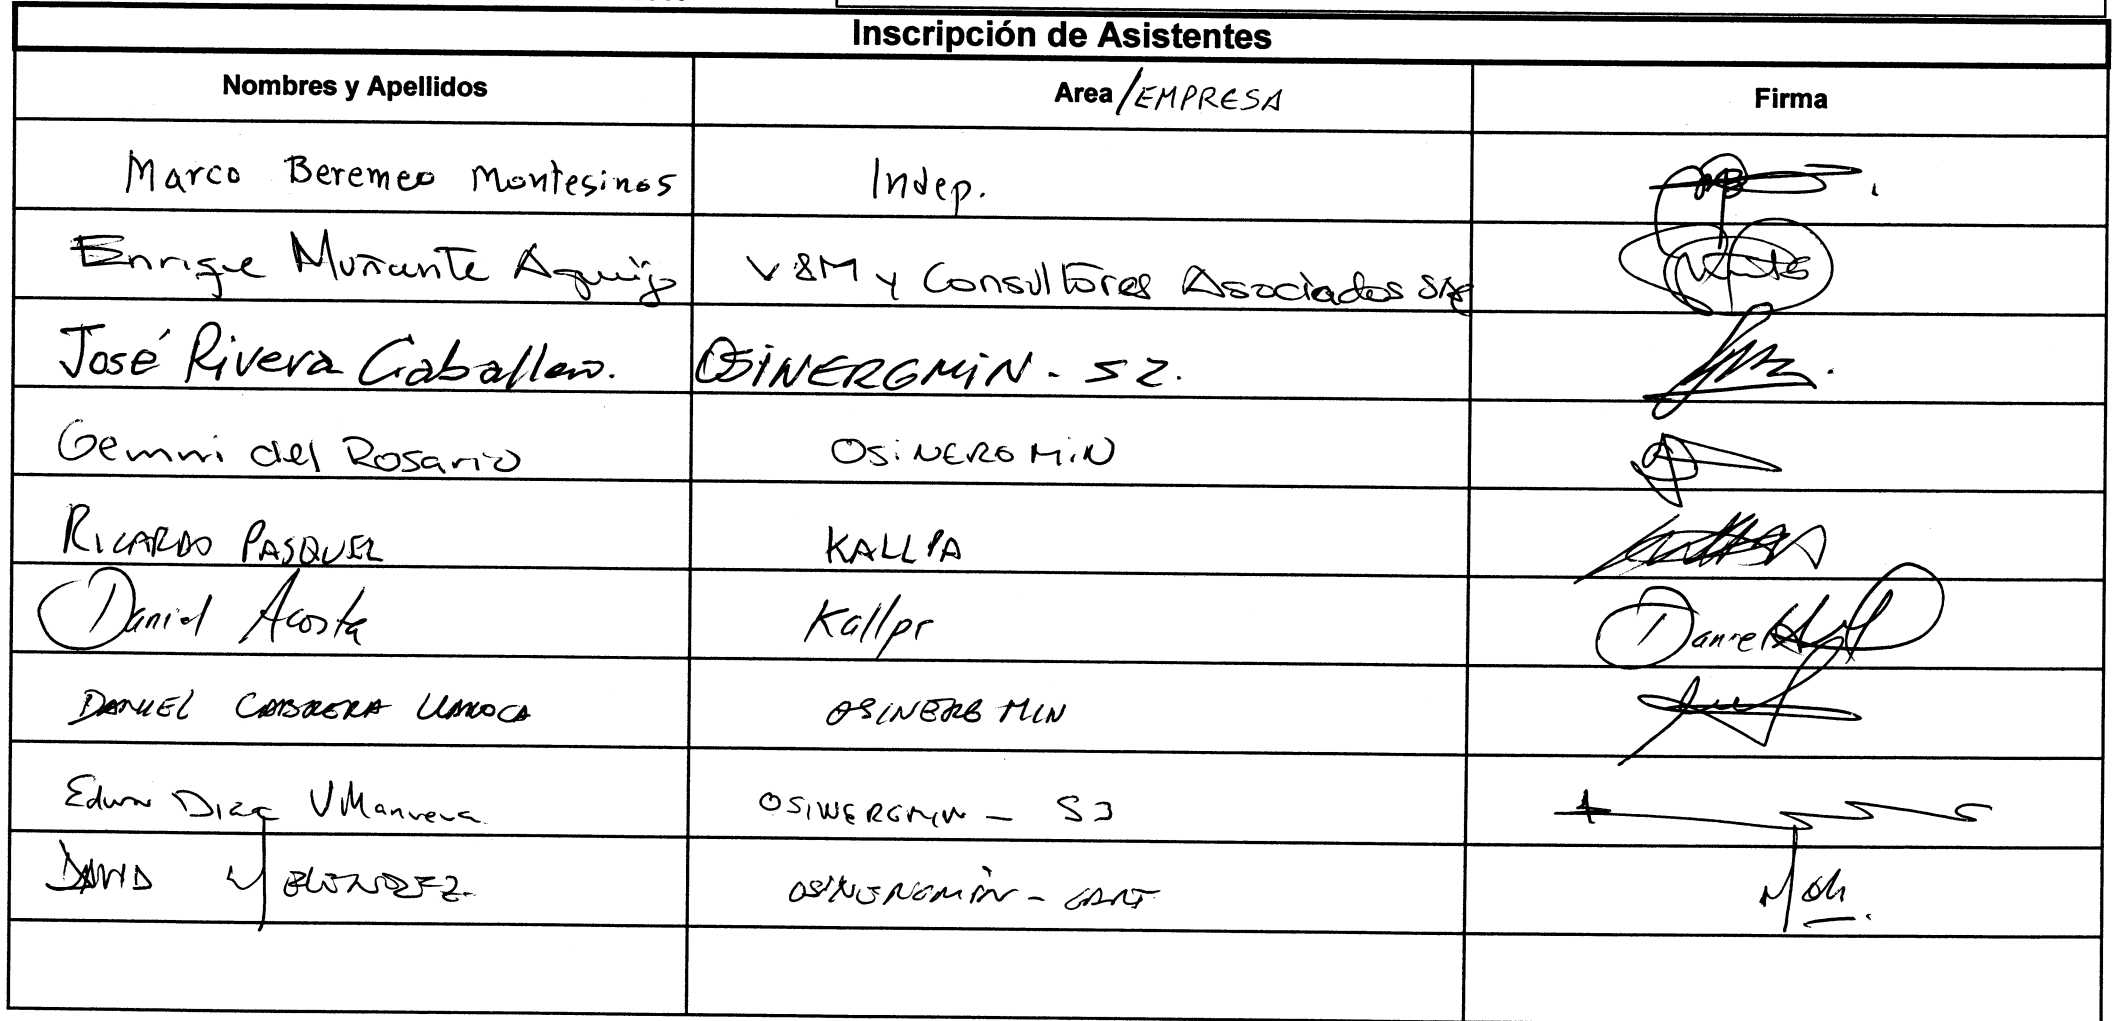 Inscripción de Asistentes
Nombres y Apellidos Area /EMPRESA Firma
Marco Beremeo Montesinos Indep.
Enrique Muñante V&M y Consultores Asociados SAC
José Rivera Caballero. OSINERGMIN - S2.
Gemmi del Rosario OSINERGMIN
RICARDO PASQUEL KALLPA
Daniel Acosta Kallpa Daniel
DANIEL CABRERA OSINERGMIN
Edwin Diaz Villanueva OSINERGMIN - S3
DAVID MELENDEZ. OSINERGMIN - GART